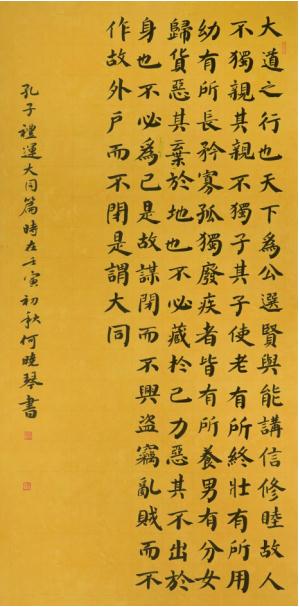 大道之行也天下為公選賢與能講信修睦故人
不獨親其親不獨子其子使老有所終壯有所用
幼有所長矜寡孤獨廢疾者皆有所養男有分女
歸貨惡其棄於地也不必藏於己力惡其不出於
身也不必為己是故謀閉而不興盜竊亂賊而不
作故外戶而不閉是謂大同
孔子禮運大同篇時在壬寅初秋何曉琴書